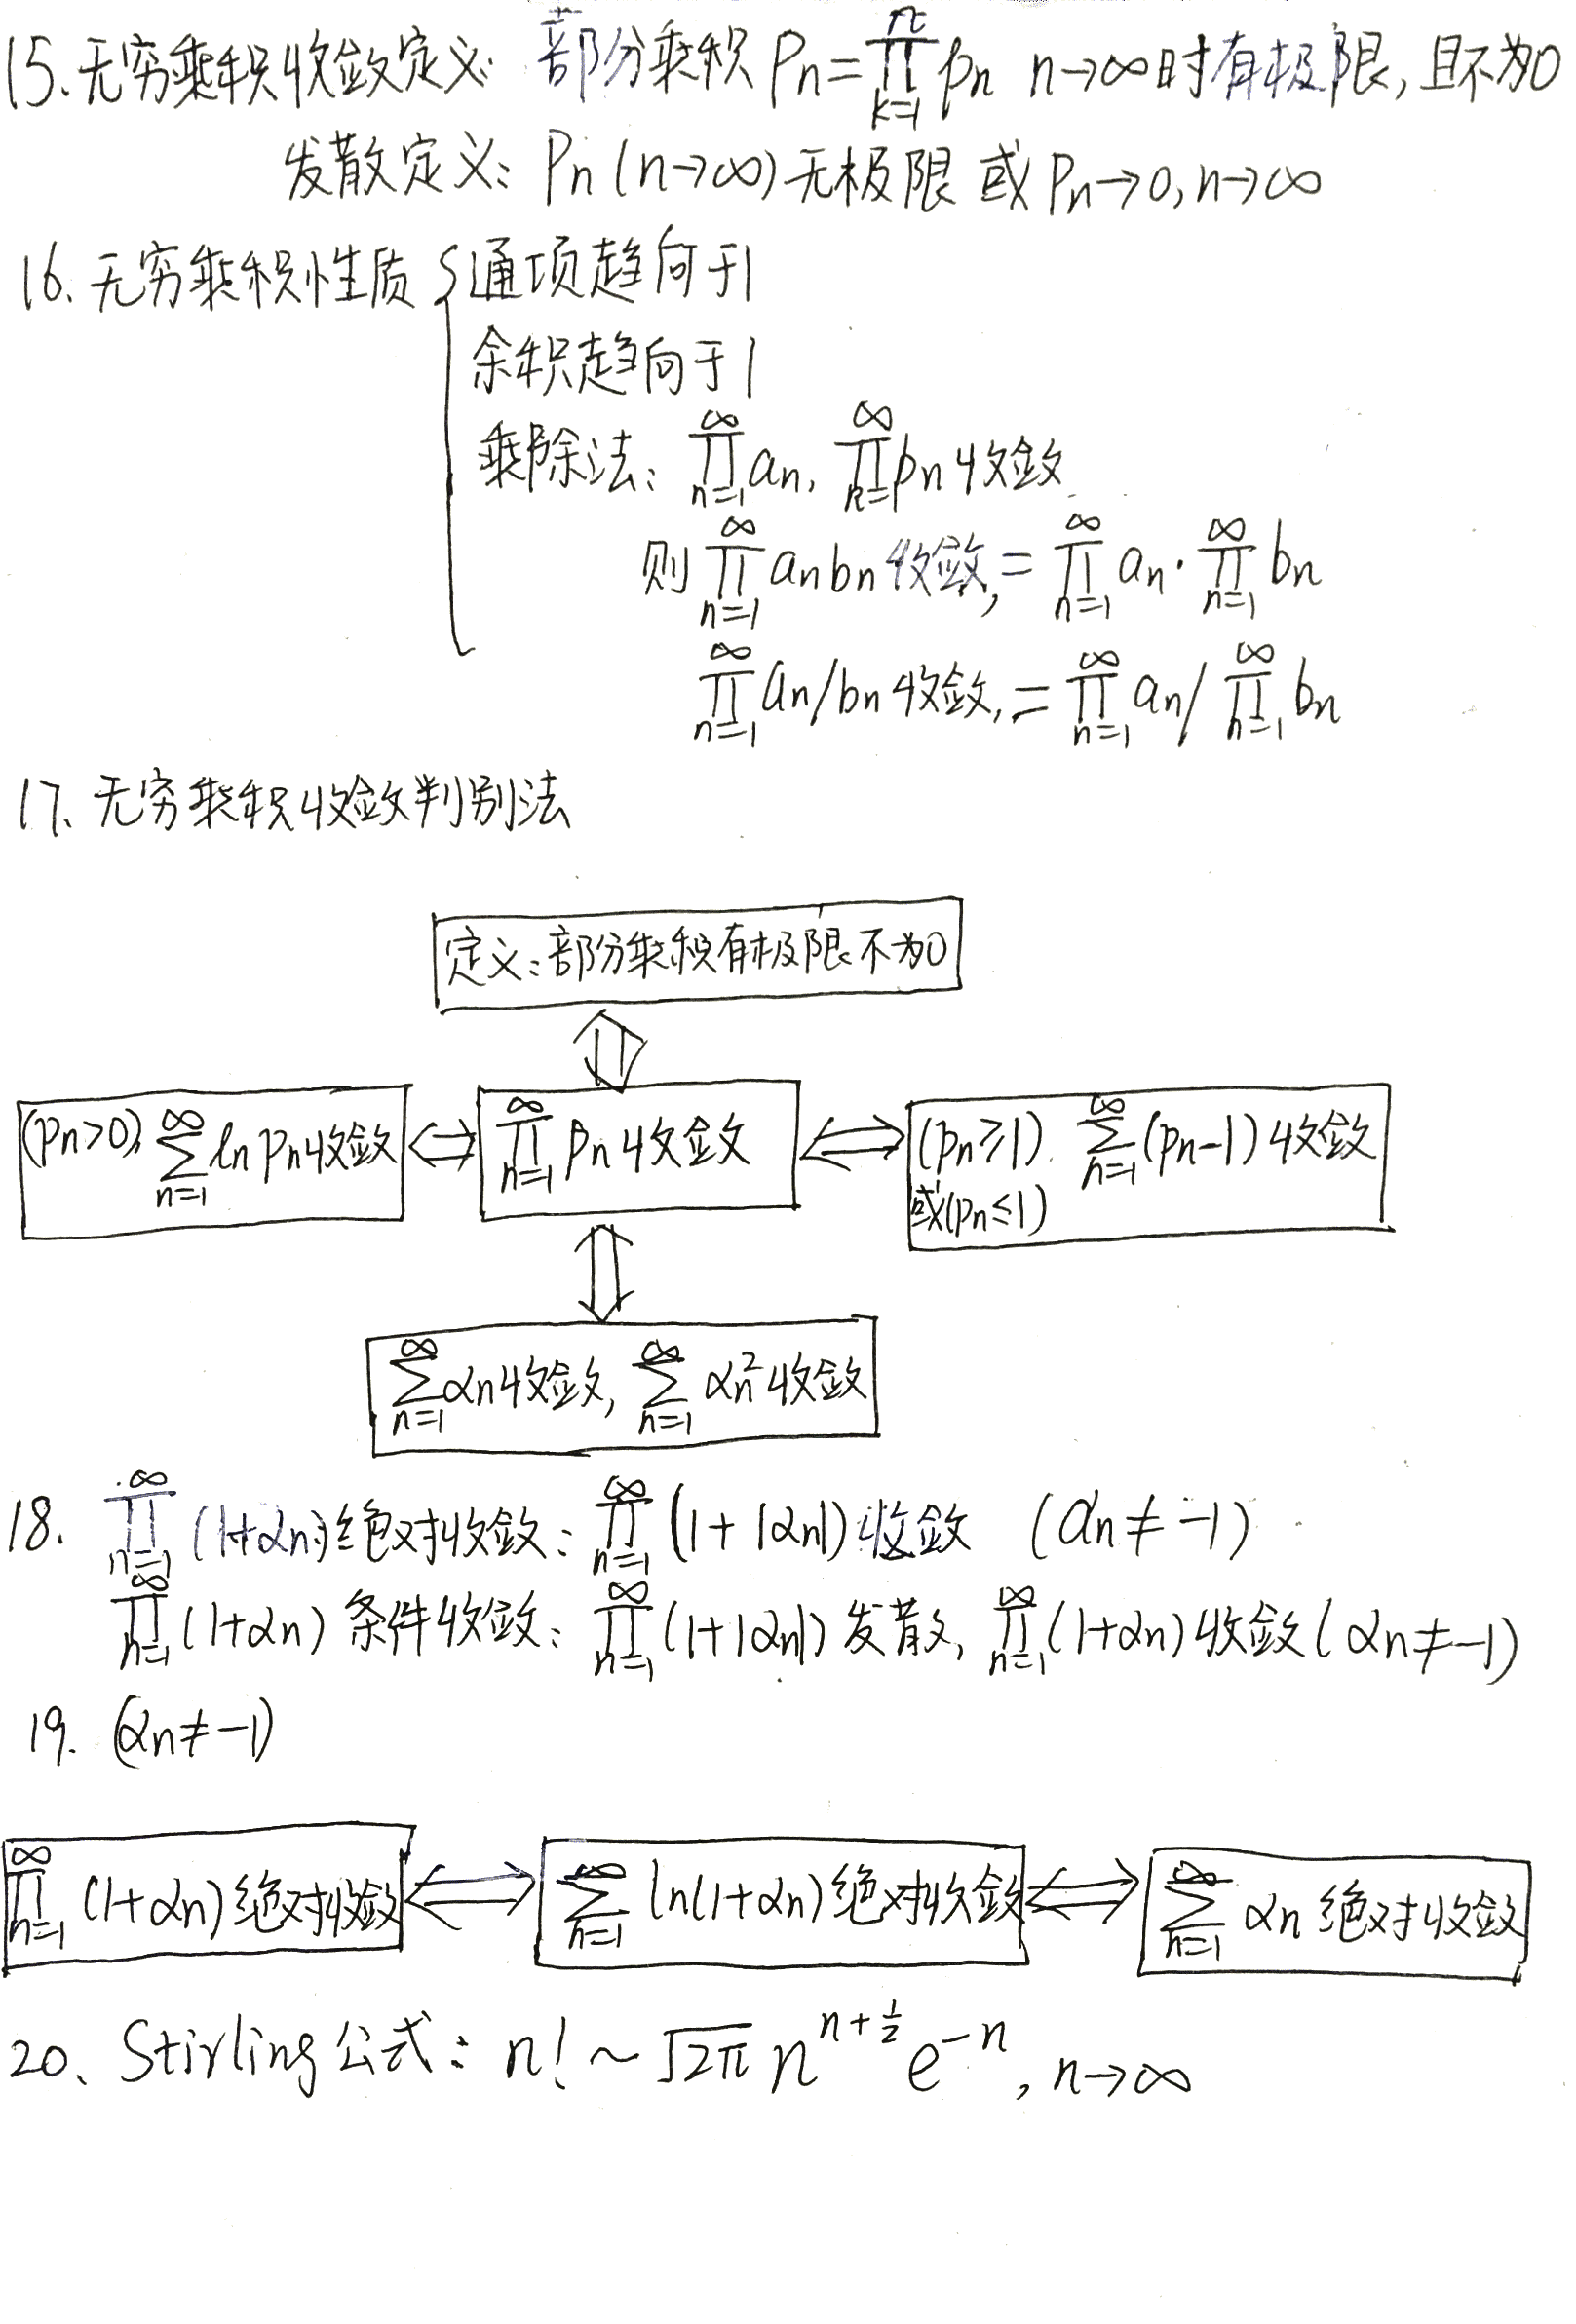 15. 无穷乘积收敛定义: 部分乘积 Pn = ∏_{k=1}^{n} pn n→∞时有极限, 且不为0
发散定义: Pn (n→∞) 无极限 或 Pn→0, n→∞
16. 无穷乘积性质 { 通项趋向于1
余积趋向于1
乘除法: ∏_{n=1}^{∞} an, ∏_{n=1}^{∞} bn 收敛
则 ∏_{n=1}^{∞} an bn 收敛, = ∏_{n=1}^{∞} an · ∏_{n=1}^{∞} bn
∏_{n=1}^{∞} an/bn 收敛, = ∏_{n=1}^{∞} an / ∏_{n=1}^{∞} bn
17. 无穷乘积收敛判别法
定义: 部分乘积有极限不为0
⇕
(pn>0), ∑_{n=1}^{∞} ln pn 收敛 ⇔ ∏_{n=1}^{∞} pn 收敛 ⇔ (pn≥1). ∑_{n=1}^{∞} (pn−1) 收敛
或(pn≤1)
⇕
∑_{n=1}^{∞} αn 收敛, ∑_{n=1}^{∞} αn² 收敛
18. ∏_{n=1}^{∞} (1+αn) 绝对收敛: ∏_{n=1}^{∞} (1+|αn|) 收敛 (αn ≠ −1)
∏_{n=1}^{∞} (1+αn) 条件收敛: ∏_{n=1}^{∞} (1+|αn|) 发散, ∏_{n=1}^{∞} (1+αn) 收敛 (αn ≠ −1)
19. (αn ≠ −1)
∏_{n=1}^{∞} (1+αn) 绝对收敛 ⇔ ∑_{n=1}^{∞} ln(1+αn) 绝对收敛 ⇔ ∑_{n=1}^{∞} αn 绝对收敛
20、Stirling 公式: n! ~ √2π n^{n+½} e^{−n}, n→∞